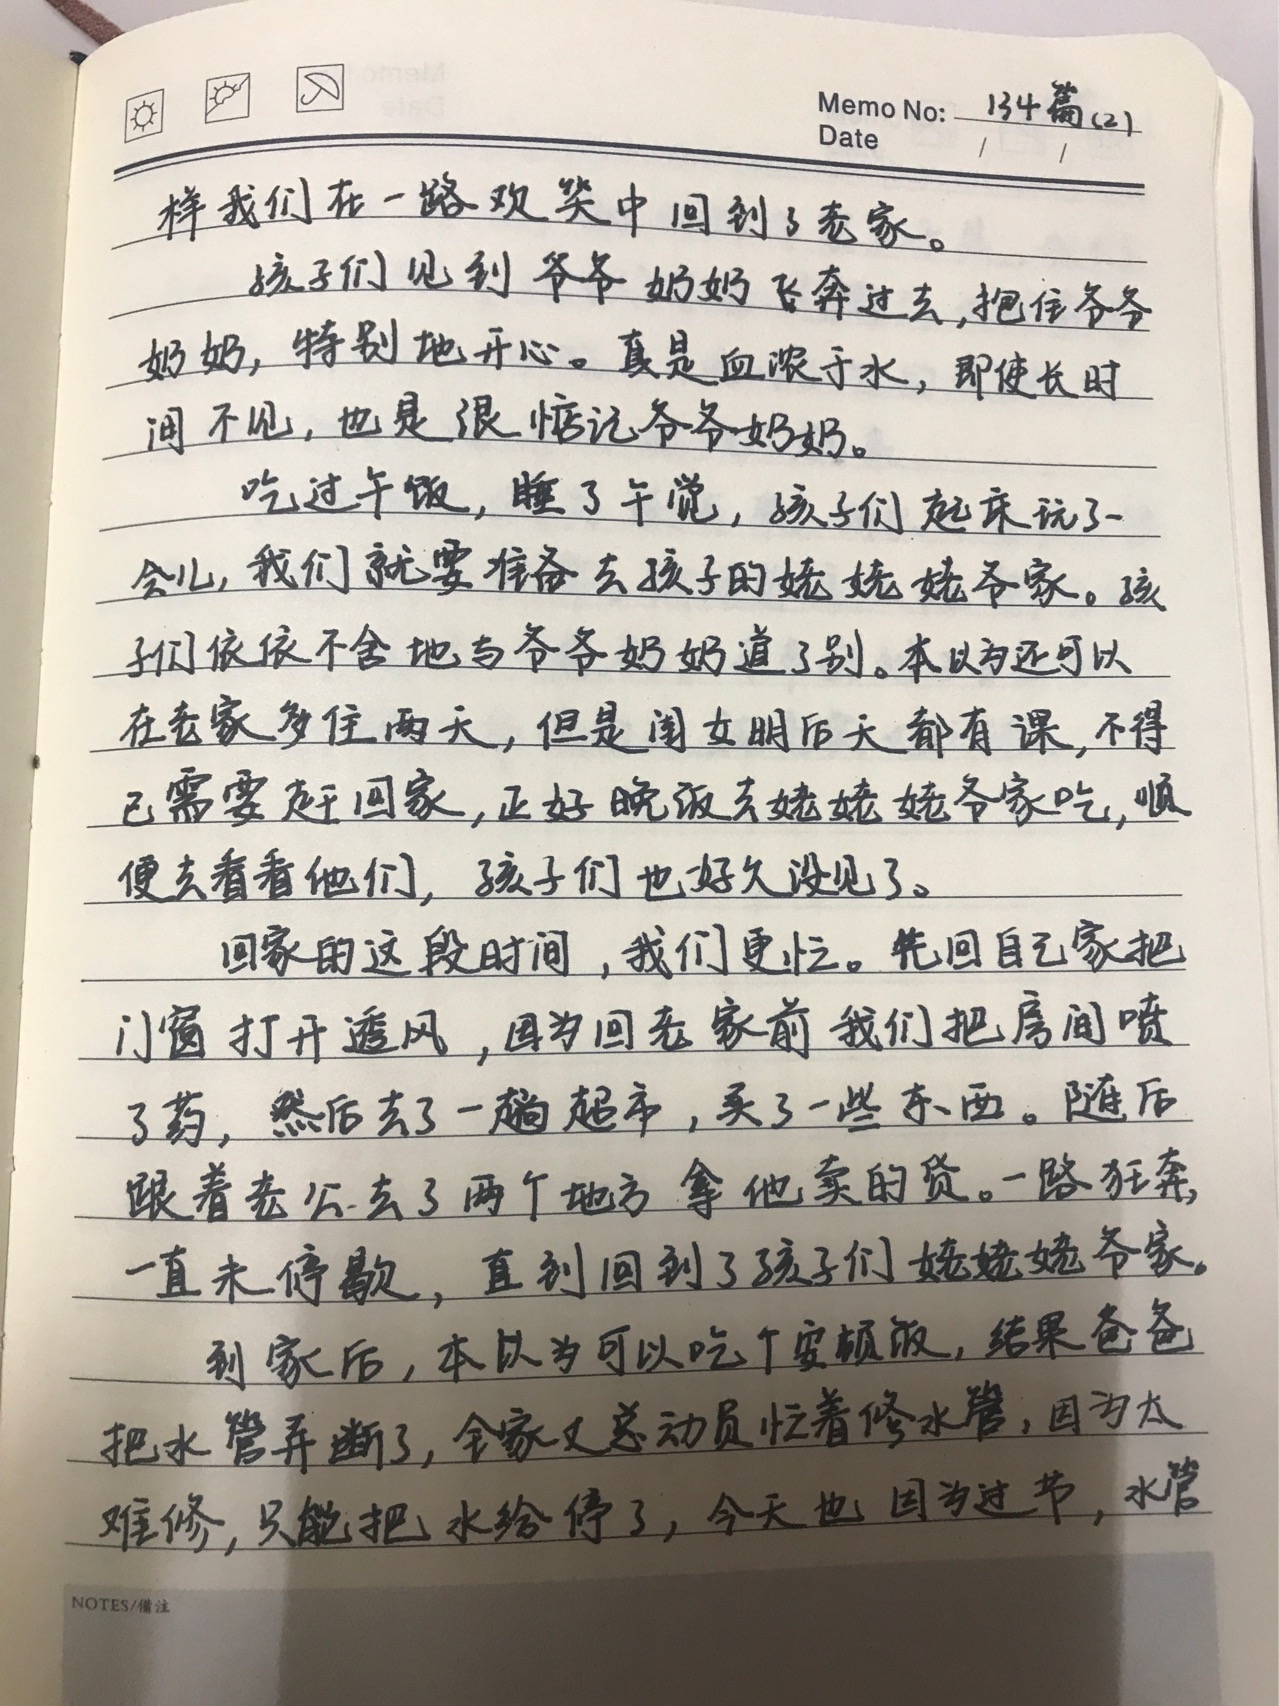 Memo No: 134篇(2)
Date / /
样我们在一路欢笑中回到了老家。
孩子们见到爷爷奶奶飞奔过去,抱住爷爷
奶奶,特别地开心。真是血浓于水,即使长时
间不见,也是很惦记爷爷奶奶。
吃过午饭,睡了午觉,孩子们起床玩了一
会儿,我们就要准备去孩子的姥姥姥爷家。孩
子们依依不舍地与爷爷奶奶道了别。本以为还可以
在老家多住两天,但是闺女明后天都有课,不得
已需要赶回家,正好晚饭去姥姥姥爷家吃,顺
便去看看他们,孩子们也好久没见了。
回家的这段时间,我们更忙。先回自己家把
门窗打开透风,因为回老家前我们把房间喷
了药,然后去了一趟超市,买了一些东西。随后
跟着老公去了两个地方拿他卖的货。一路狂奔,
一直未停歇,直到回到了孩子们姥姥姥爷家。
到家后,本以为可以吃个安顿饭,结果爸爸
把水管弄断了,全家又总动员忙着修水管,因为太
难修,只能把水给停了,今天也因为过节,水管
NOTES/備注